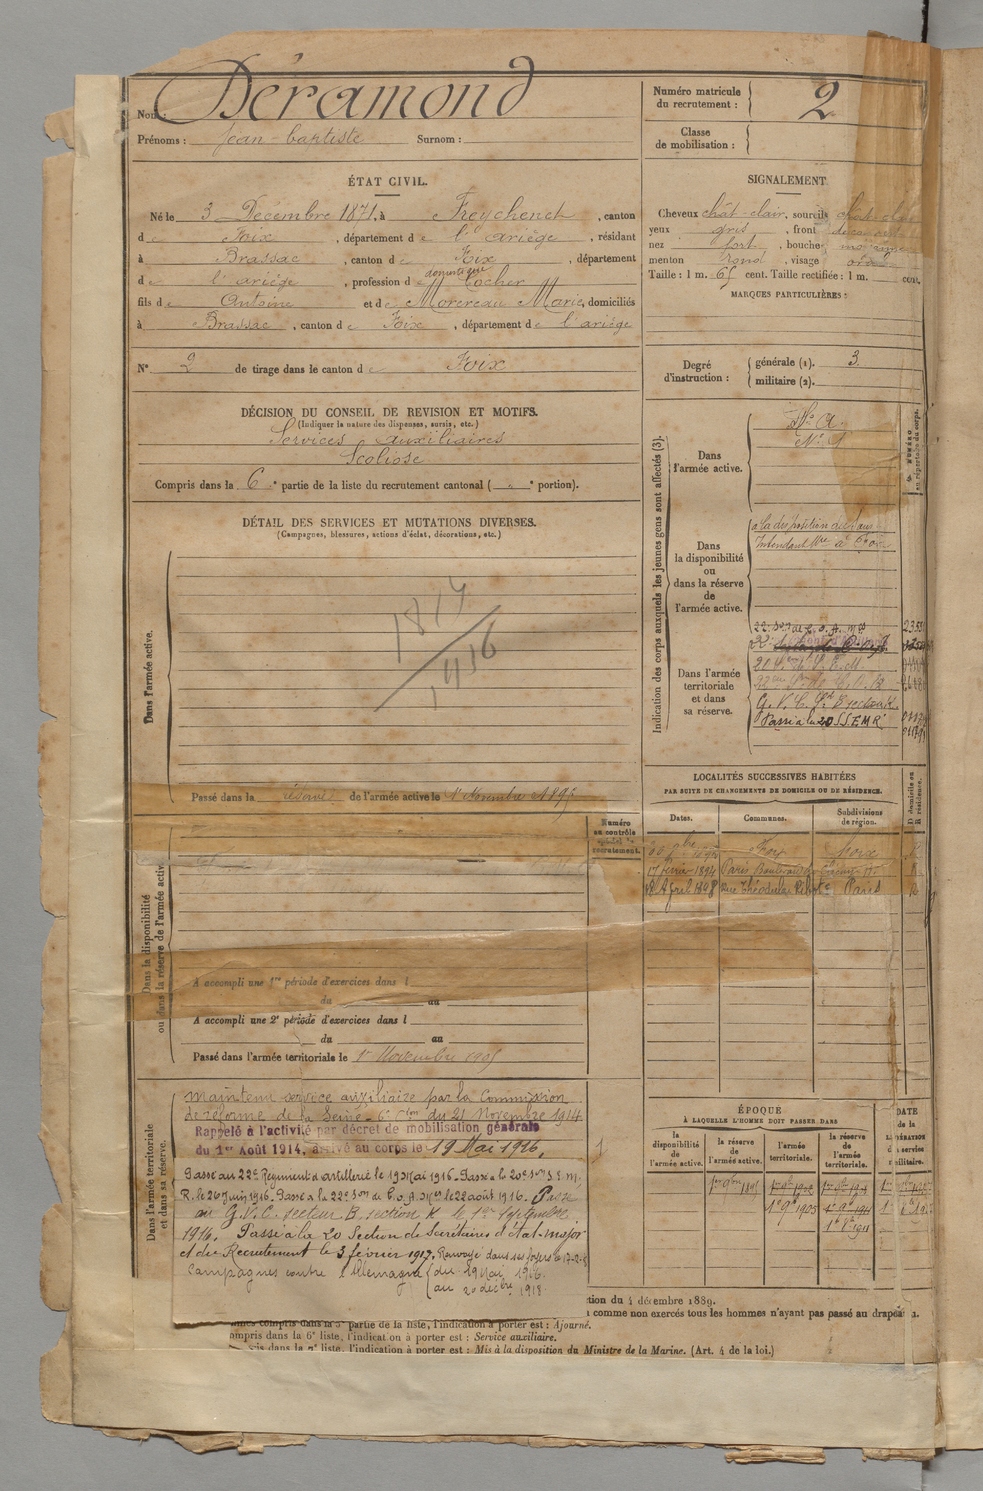 Nom : Déramond
Prénoms : Jean-baptiste Surnom :
Numéro matricule du recrutement : 2
Classe de mobilisation :
ÉTAT CIVIL.
Né le 3 Décembre 1871, à Freychenet, canton
de Foix, département de l'ariége, résidant
à Brassac, canton de Foix, département
domestique
de l'ariége, profession de Cocher
fils de Antoine et de Morereau Marie, domiciliés
à Brassac, canton de Foix, département de l'ariége
SIGNALEMENT
Cheveux chât-clair, sourcils chât-clair
yeux gris, front
nez fort, bouche moyenne
menton rond, visage ovale
Taille : 1 m. 65 cent. Taille rectifiée : 1 m. cent.
MARQUES PARTICULIÈRES :
N° 2 de tirage dans le canton de Foix
Degré d'instruction : générale (1). 3
militaire (2).
DÉCISION DU CONSEIL DE REVISION ET MOTIFS.
(Indiquer la nature des dispenses, sursis, etc.)
Services auxiliaires
Scoliose
Compris dans la 6e partie de la liste du recrutement cantonal ( " e portion).
DÉTAIL DES SERVICES ET MUTATIONS DIVERSES.
(Campagnes, blessures, actions d'éclat, décorations, etc.)
Dans l'armée active.
Passé dans la réserve de l'armée active le 1er Novembre 1895
Indication des corps auxquels les jeunes gens sont affectés (3).
NUMÉRO au répertoire du corps.
Dans l'armée active.
Dans la disponibilité ou dans la réserve de l'armée active.
à la disposition
Intendant
Dans l'armée territoriale et dans sa réserve.
22e Son de C. O. A.
G. V. C.
Passé à la 20 S.S.E.M.R.
LOCALITÉS SUCCESSIVES HABITÉES
PAR SUITE DE CHANGEMENTS DE DOMICILE OU DE RÉSIDENCE.
Dates. Communes. Subdivisions de région. D domicile ou R résidence.
Foix Foix
17 février 1894 Paris
Avril 1898 rue Théodule Ribot Paris R
Numéro au contrôle spécial du recrutement.
Dans la disponibilité ou dans la réserve de l'armée active.
A accompli une 1re période d'exercices dans l
du au
A accompli une 2e période d'exercices dans l
du au
Passé dans l'armée territoriale le 1er Novembre 1905
Dans l'armée territoriale et dans sa réserve.
Maintenu service auxiliaire par la Commission
de réforme de la Seine du 21 Novembre 1914
Rappelé à l'activité par décret de mobilisation générale
du 1er Août 1914, arrivé au corps le 19 Mai 1916,
Passé au 22e Régiment d'artillerie le 19 Mai 1916. Passé à la 20e Son S.E.M.
R. le 26 Juin 1916. Passé à la 22e Son de C.O.A. le 22 août 1916. Passé
au G.V.C. secteur B. section K le 1er Septembre
1916. Passé à la 20 Section de Secrétaires d'état-major
et du Recrutement le 3 février 1917. Renvoyé dans ses foyers le
Campagnes contre l'Allemagne (du 19 Mai 1916.
(au 20 décbre 1918
ÉPOQUE
À LAQUELLE L'HOMME DOIT PASSER DANS
la disponibilité de l'armée active.
la réserve de l'armée active.
l'armée territoriale.
la réserve de l'armée territoriale.
DATE de la LIBÉRATION du service militaire.
tion du 4 décembre 1889.
comme non exercés tous les hommes n'ayant pas passé au drapeau.
partie de la liste, l'indication à porter est : Ajourné.
ompris dans la 6e liste, l'indication à porter est : Service auxiliaire.
is dans la 7e liste, l'indication à porter est : Mis à la disposition du Ministre de la Marine. (Art. 4 de la loi.)